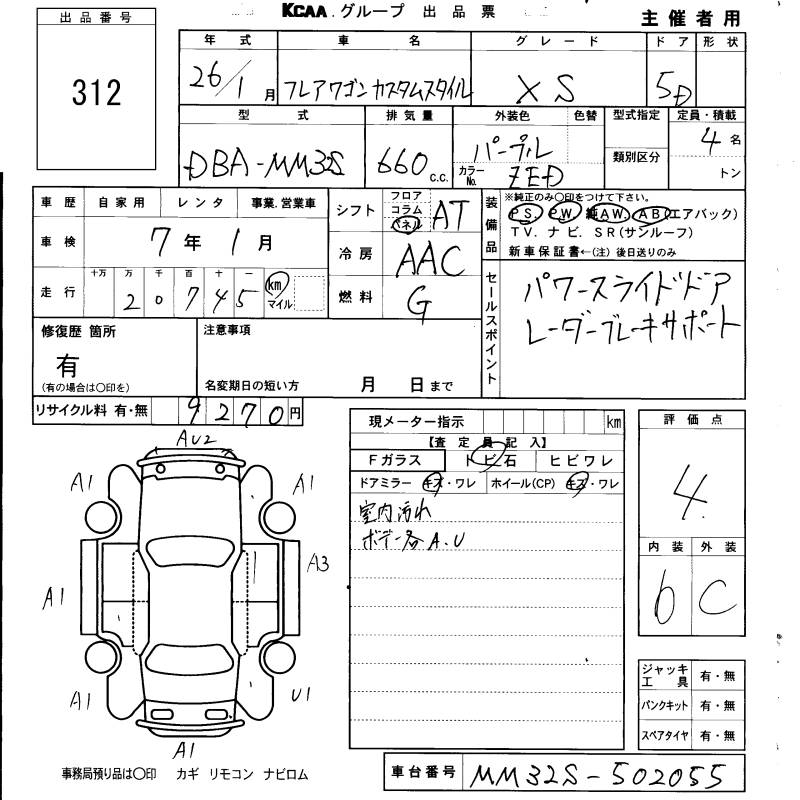 KCAA グループ 出品票
主催者用
出品番号
312
年式 車名 グレード ドア 形状
26/1月 フレアワゴン カスタムスタイル XS 5D
型式 排気量 外装色 色替 型式指定 定員・積載
DBA-MM32S 660 c.c. パープル 類別区分 4名
カラーNo. ZED トン
車歴 自家用 レンタ 事業.営業車
車検 7年1月
走行 十万 万 千 百 十 一
20745 km マイル
シフト フロア コラム パネル AT
冷房 AAC
燃料 G
装備品 ※純正のみ〇印をつけて下さい。
PS. PW. 純AW. AB(エアバック)
TV. ナビ. SR(サンルーフ)
新車保証書←(注)後日送りのみ
セールスポイント
パワースライドドア
レーダーブレーキサポート
修復歴 箇所
有
(有の場合は〇印を)
注意事項
名変期日の短い方 月 日まで
リサイクル料 有・無 9270円
現メーター指示 km
【査定員記入】
Fガラス トビ石 ヒビワレ
ドアミラー キズ・ワレ ホイール(CP) キズ・ワレ
室内汚れ
ボデー各A.U
評価点
4
内装 外装
6 C
AU2
A1 A1
A3
A1
A1 U1
A1
ジャッキ工具 有・無
パンクキット 有・無
スペアタイヤ 有・無
事務局預り品は〇印 カギ リモコン ナビロム
車台番号 MM32S-502055